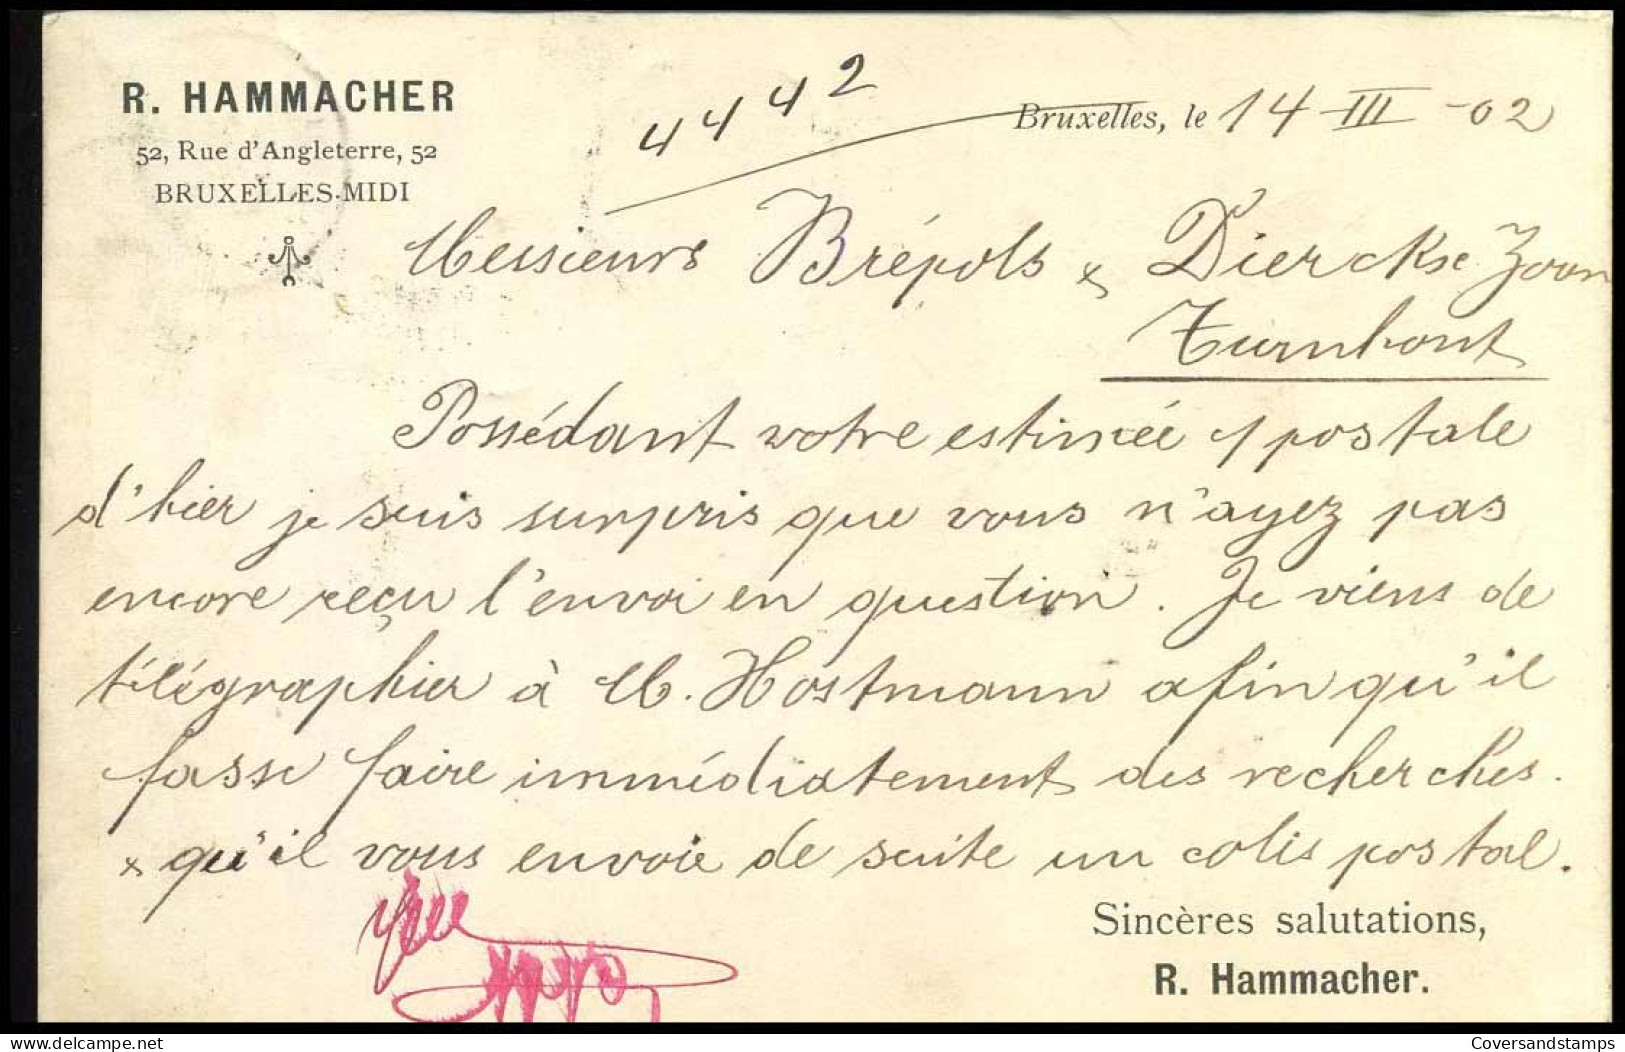 R. HAMMACHER
52, Rue d'Angleterre, 52
BRUXELLES-MIDI
4442
Bruxelles, le 14 III -02
Messieurs Brépols & Dierckx Zoon
Turnhout
Possédant votre estimée postale
d'hier je suis surpris que vous n'ayez pas
encore reçu l'envoi en question. Je viens de
télégraphier à M. Hostmann afin qu'il
fasse faire immédiatement des recherches.
& qu'il vous envoie de suite un colis postal.
Sincères salutations,
R. Hammacher.
delcampe.net
Coversandstamps